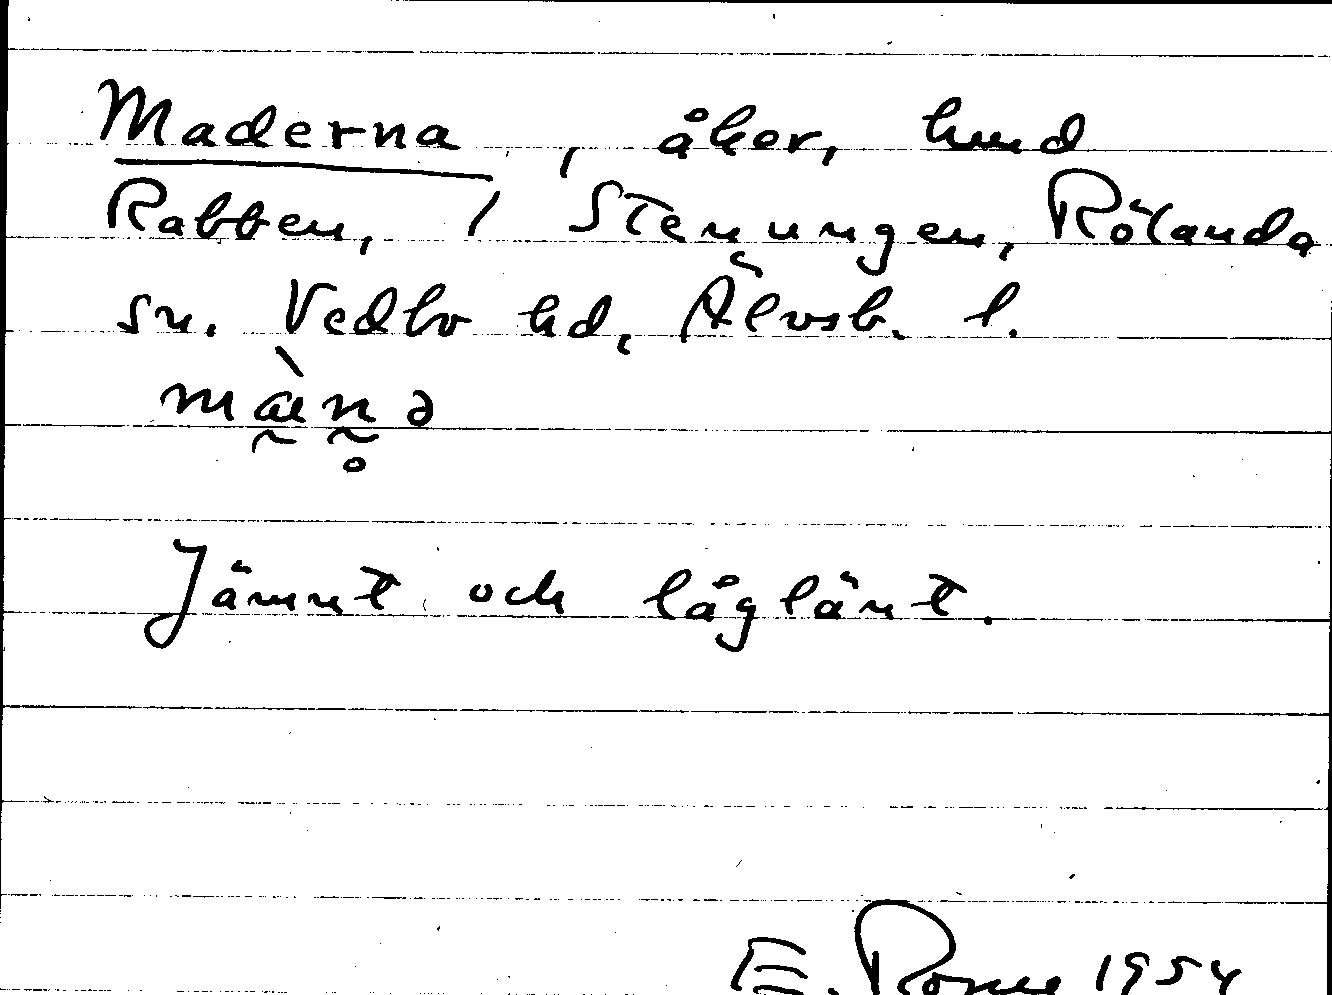 Maderna, åker, hmd
Rabben, 1 Stenungen, Rölanda
sn. Vedbo hd, Älvsb. l.
Jämnt och låglänt.
E. 1954